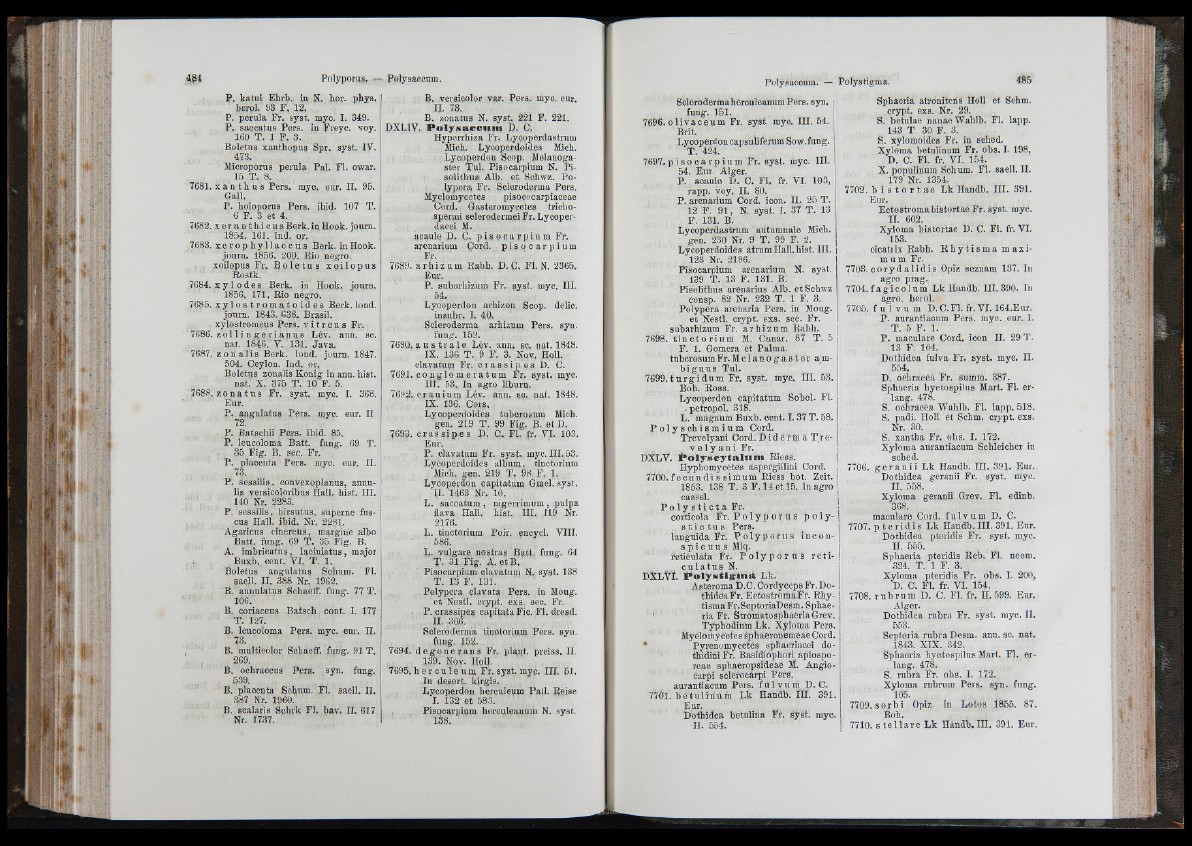 484 Polyporus. — Polysaccum.
P. katui Ehrb. in N. hor. phys.
berol. 93 F. 12.
P. perula Fr. syst. myc. I. 349.
P. saccatus Pers. in Freyc. voy.
169 T. 1 F. 3.
Boletus xanthopus Spr. syst. IV.
473.
Microporus perula Pal. Fl. owar.
15 T. 8.
7681. xanthus Pers. myc. eur. II. 95.
Gall.
P. holoporus Pers. ibid. 107 T.
6 F. 3 et 4.
7682. xeranthicus Berk. in Hook. journ.
1854. 161. Ind. or.
7683. xerophyllaceus Berk. in Hook.
journ. 1856. 200. Rio negro.
xoilopus Fr. Boletus xoilopus
Rostk.
7684. xylodes Berk. in Hook. journ.
1856. 171. Rio negro.
7685. xylostromatoides Berk. lond.
journ. 1843. 638. Brasil.
xylostromeus Pers. vitreus Fr.
7686. zollingerianus Lév. ann. sc.
nat. 1846. V. 131. Java.
7687. zonalis Berk. lond. journ. 1847.
504. Ceylon. Ind. or.
Boletus zonalis Konig in ann. hist.
nat. X. 375 T. 10 F. 5.
7688. zonatus Fr. syst. myc. I. 368.
Eur.
P. angulatus Pers. myc. eur. II
72.
P. Batschii Pers. ibid. 85.
P. leucoloma Batt. fung. 69 T.
35 Fig. B. sec. Fr.
P. placenta Pers. myc. eur. II.
73.
P. sessilis, convexoplanus, annu-
lis versicoloribus Hall. hist. III.
140 Nr. 2283.
P. sessilis, hirsutus, superne fus-
cus Hall. ibid. Nr. 2281.
Agaricus cinereus, margine albo
Batt. fung. 69 T. 35 Fig. B.
A. imbricatus, laciniatus, major
Buxb. cent. VI. T. 1.
Boletus angulatus Schum. Fl.
saell. II. 388 Nr. 1962.
B. annulatus Schaeff. fung. 77 T.
106.
B. coriaceus Batsch. cont. I. 177
T. 127.
B. leucoloma Pers. myc. eur. II.
73.
B. multicolor Schaeff. fung. 91 T.
269.
B. ochraceus Pers. syn. fung.
539.
B. placenta Schum. Fl. saell. II.
387 Nr. 1960.
B. scalaris Schrk Fl. bav. II. 617
Nr. 1737.
B. versicolor var. Pers. myc. eur.
II. 73.
B. zonatus N. syst. 221 F. 221.
DXLIV. Polysaccum D. C.
Hyperrhiza Fr. Lycoperdastrum
Mich. Lycoperdoides Mich.
Lycoperdon Scop. Melanoga-
ster Tul. Pisocarpium N. Pi-
solithus Alb. et Schwz. Po-
lypera Fr. Scleroderma Pers.
Myelomycetes pisococarpiaceae
Cord. Gasteromycetes tricho-
spermi sclerodermei Fr. Lycoper-
dacei M.
acaule D. C. pisocarpium Fr.
arenarium Cord. pisocarpium
Fr.
7689. arhizum Rabh. D. C. Fl. N. 2365.
Eur.
P. subarhizum Fr. syst. myc. III.
54.
Lycoperdon arhizon Scop. delic.
insubr. I. 40.
Scleroderma arhizum Pers. syn.
fung. 152.
7690. australe Lév. ann. sc. nat. 1848.
IX. 136 T. 9 F. 3. Nov. Holl.
clavatum Fr. crassipes D. C.
7691. conglomeratum Fr. syst. myc.
III. 53. In agro liburn.
7692. cranium Lév. ann. sc. nat. 1848.
IX. 136. Cors.
Lycoperdoides tuberosum Mich.
gen. 219 T. 99 Fig. B. et D.
7693. crassipes D. C. Fl. fr. VI. 103.
Eur.
P. clavatum Fr. syst. myc. III. 53.
Lycoperdoides album, tinctorium
Mich. gen. 219 T. 98 F. 1.
Lycoperdon capitatum Gmel. syst.
II. 1463 Nr. 10.
L. saccatum, nigerrimum, pulpa
flava Hall. hist. III. 119 Nr.
2176.
L. tinctorium Poir. encycl. VIII.
586.
L. vulgare nostras Batt. fung. 64
T. 31 Fig. A. et B.
Pisocarpium clavatum N. syst. 138
T. 13 F. 131.
Polypera clavata Pers. in Moug.
et Nestl. crypt. exs. sec. Fr.
P. crassipes capitata Fic. Fl. dresd.
II. 306.
Scleroderma tinctorium Pers. syn.
fung. 152.
7694. degenerans Fr. plant. preiss. II.
139. Nov. Holl.
7695. herculeum Fr. syst. myc. III. 51.
In desert. kirgis.
Lycoperdon herculeum Pall. Reise
I. 132 et 583.
Pisocarpium herculeanum N. syst.
138.
Polysaccum. — Polystigma. 485
Scleroderma herculeanum Pers. syn.
fung. 151.
7696. olivaceum Fr. syst. myc. III. 54.
Brit.
Lycoperdon capsuliferum Sow. fung.
T. 424.
7697. pisocarpium Fr. syst. myc. III.
54. Eur. Alger.
P. acaule D. C. Fl. fr. VI. 103,
rapp. voy. II. 80.
P. arenarium Cord. icon. II. 25 T.
12 F. 91, N. syst. I. 37 T. 13
F. 131. B.
Lycoperdastrum autumnale Mich.
gen. 230 Nr. 9 T. 99 F. 2.
Lycoperdoides atrum Hall. hist. III.
123 Nr. 2196.
Pisocarpium arenarium N. syst.
139 T. 13 F. 131. B.
Pisolithus arenarius Alb. et Schwz
consp. 82 Nr. 232 T. 1 F. 3.
Polypera arenaria Pers. in Moug.
et Nestl. crypt. exs. sec. Fr.
subarhizum Fr. arhizum Rabh.
7698. tinctorium M. Canar. 87 T. 5
F. 1. Gomera et Palma.
tuberosum Fr. Melanogastor am-
biguus Tul.
7699. turgidum Fr. syst. myc. III. 53.
Boh. Ross.
Lycoperdon capitatum Sobol. Fl.
petropol. 318.
L. magnum Buxb. cent. I. 37 T. 58.
Polyschismium Cord.
Trevelyani Cord. Diderma Tre-
velyani Fr.
DXLV. Polyscytalum Riess.
Hyphomycetes aspergillini Cord.
7700. fecundissimum Riess bot. Zeit.
1853. 138 T. 3 F. 14 et 15. In agro
cassel.
Polysticta Fr.
corticola Fr. Polyporus poly-
stictus Pers.
languida Fr. Polyporus incon-
spicuus Miq.
reticulata Fr. Polyporus reti-
culatus N.
DXLVI. Polystigma Lk.
Asteroma D. C. Cordyceps Fr. Do-
thidea Fr. Ectostroma Fr. Rhy-
tisma Fr. Septoria Desm. Sphae-
ria Fr. Stromatosphaeria Grev.
Typhodium Lk. Xyloma Pers.
Myelomycetes sphaeronemeae Cord.
Pyrenomycetes sphaeriacei do-
thidini Fr. Basidiophori aplospo-
reae sphaeropsideae M. Angio-
carpi sclerocarpi Pers.
aurantiacum Pers. fulvum D. C.
7701. betulinum Lk Handb. III. 391.
Eur.
Dothidea betulina Fr. syst. myc.
II. 554.
Sphaeria atronitens Holl et Schm.
crypt. exs. Nr. 29.
S. betulae nanae Wahlb. Fl. lapp.
143 T 30 F. 3.
S. xylomoides Fr. in sched.
Xyloma betulinum Fr. obs. I. 198,
D. C. Fl. fr. VI. 154.
X. populinum Schum. Fl. saell. II.
179 Nr. 1354.
7702. bistortae Lk Handb. III. 391.
Eur.
Ectostroma bistortae Fr. syst. myc.
II. 602.
Xyloma bistortae D. C. Fl. fr. VI.
153.
cicatrix Rabh. Rhytisma maxi-
mum Fr.
7703. corydalidis Opiz seznam 137. In
agro prag.
7704. fagicolum Lk Handb. III. 390. In
agro. berol.
7705. fulvum D. C. Fl. fr. VI. 164. Eur.
P. aurantiacum Pers. myc. eur. I.
T. 5 F. 1.
P. maculare Cord. icon II. 29 T.
13 F. 104.
Dothidea fulva Fr. syst. myc. II.
554.
D. ochracea Fr. summ. 387.
Sphaeria hyetospilus Mart. Fl. er-
lang. 478.
S. ochracea Wahlb. Fl. lapp. 518.
S. padi. Holl et Schm. crypt. exs.
Nr. 30.
S. xantha Fr. obs. I. 172.
Xyloma aurantiacum Schleicher in
sched.
7706. geranii Lk Handb. III. 391. Eur.
Dothidea geranii Fr. syst. myc.
II. 558.
Xyloma geranii Grev. Fl. edinb.
368.
maculare Cord. fulvum D. C.
7707. pteridis Lk Handb. III. 391. Eur.
Dothidea pteridis Fr. syst. myc.
II. 555.
Sphaeria pteridis Reb. Fl. neom.
324. T. 1 F. 3.
Xyloma pteridis Fr. obs. I. 200,
D. C. Fl. fr. VI. 154.
7708. rubrum D. C. Fl. fr. II. 599. Eur.
Alger.
Dothidea rubra Fr. syst. myc. II.
553.
Septoria rubra Desm. ann. sc. nat.
1843. XIX. 342.
Sphaeria hyetospilus Mart. Fl. er-
lang. 478.
S. rubra Fr. obs. I. 172.
Xyloma rubrum Pers. syn. fung.
105.
7709. sorbi Opiz in Lotos 1855. 87.
Boh.
7710. stellare Lk Handb. III. 391. Eur.